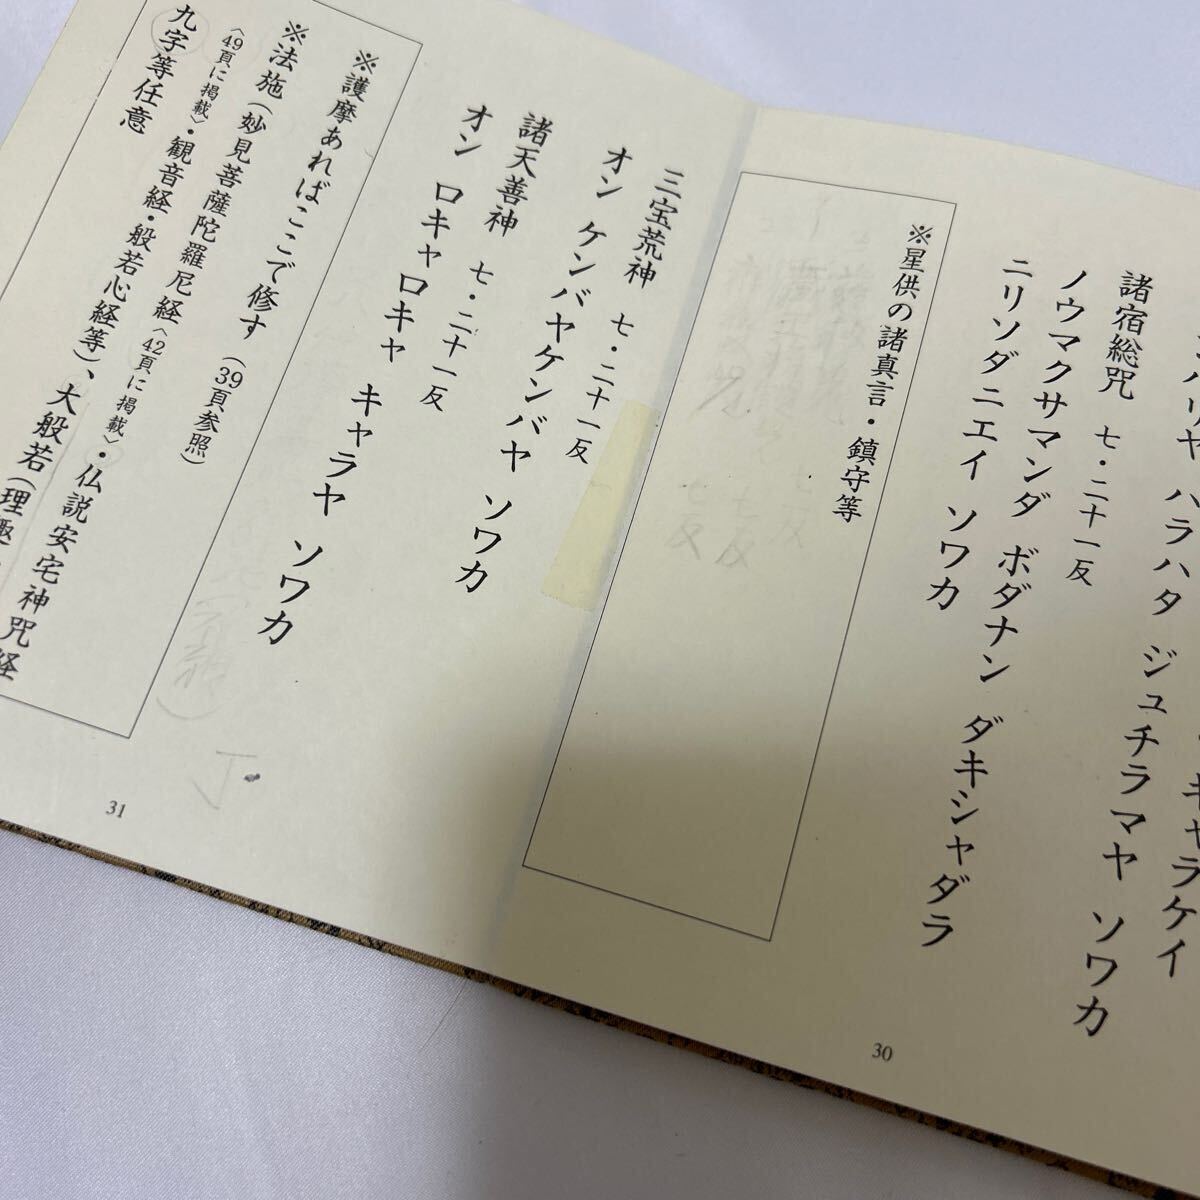 ハリヤ ハラハタ ジュチラマヤ ソワカ
諸宿総咒 七・二十一反
ノウマクサマンダ ボダナン ダキシャダラ
ニリソダニエイ ソワカ
※星供の諸真言・鎮守等
七反
七反
七反
30
三宝荒神 七・二十一反
オン ケンバヤケンバヤ ソワカ
諸天善神 七・二十一反
オン ロキャロキャ キャラヤ ソワカ
※護摩あればここで修す(39頁参照)
※法施(妙見菩薩陀羅尼経〈42頁に掲載〉・仏説安宅神咒経
〈49頁に掲載〉・観音経・般若心経等)、大般若(理趣
九字等任意
丁
31